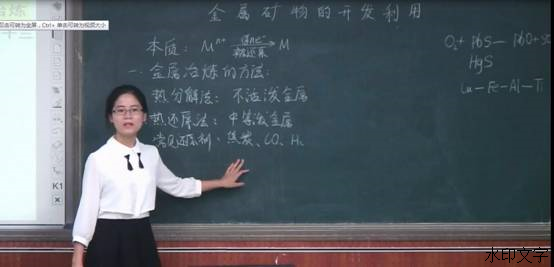 双击可转为全屏，Ctrl+ 单击可转为视频大小
金属矿物的开发利用
本质：Mⁿ⁺ 得ne⁻ 被还原 → M
一. 金属冶炼的方法：
热分解法：不活泼金属
热还原法：中等活泼金属
常见还原剂：焦炭、CO、H₂
O₂ + PbS — PbO + SO
HgS
Cu — Fe — Al — Ti
K1
水印文字